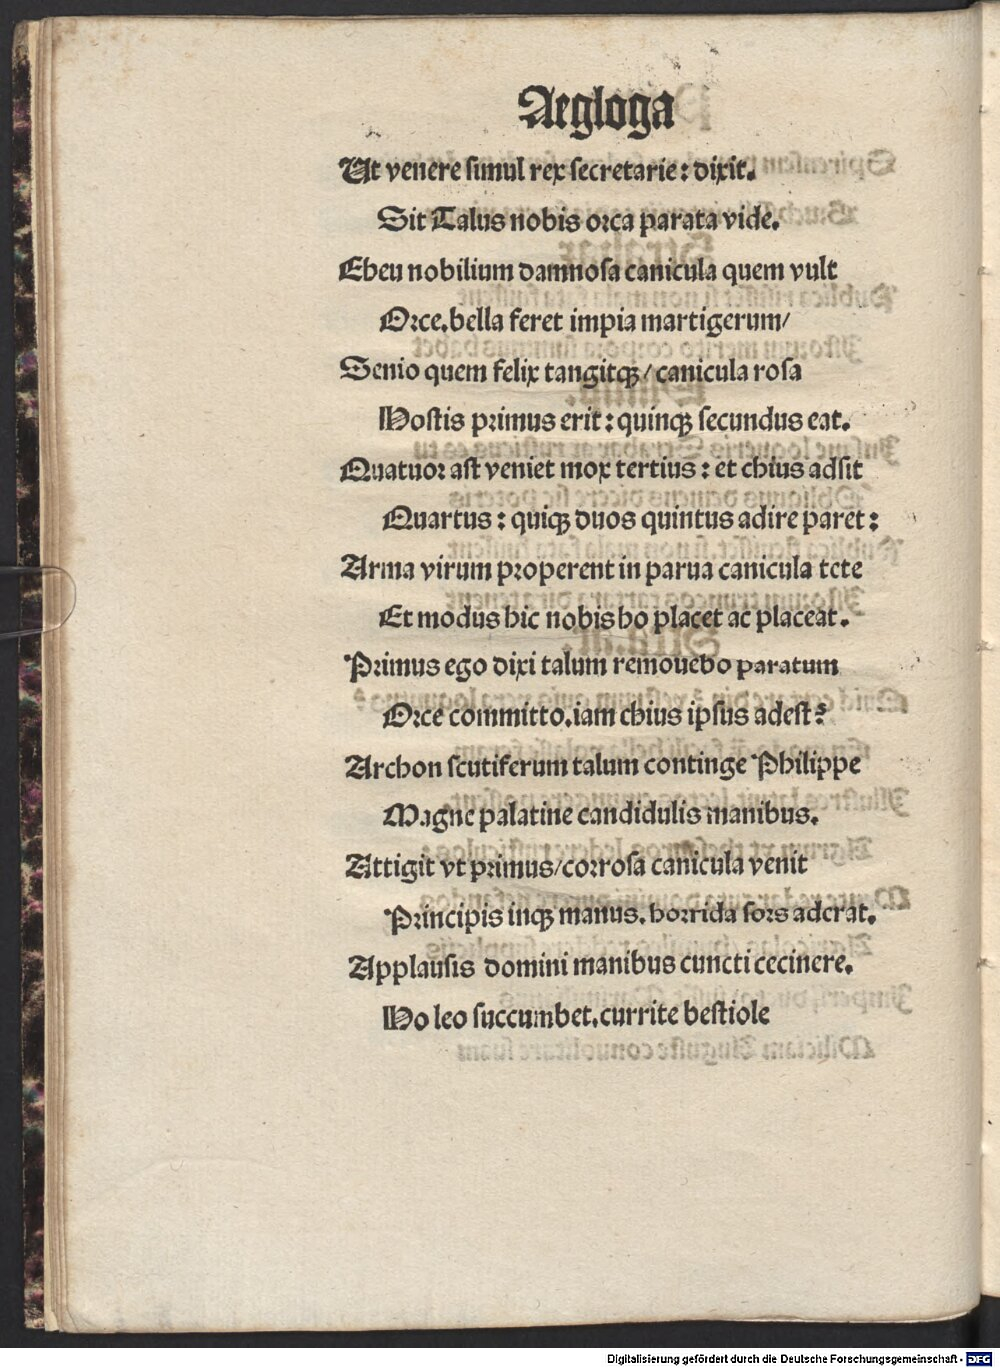 Aegloga
Ut venere simul rex secretarie: dixit.
Sit Talus nobis orca parata vide.
Eheu nobilium damnosa canicula quem vult
Orce. bella feret impia martigerum/
Senio quem felix tangitqꝫ/ canicula rosa
Hostis primus erit: quinqꝫ secundus eat.
Quatuor ast veniet mox tertius: et chius adsit
Quartus: quiqꝫ duos quintus adire paret:
Arma virum properent in parua canicula tete
Et modus hic nobis ho placet ac placeat.
Primus ego dixi talum remouebo paratum
Orce committo. iam chius ipsus adest?
Archon scutiferum talum continge Philippe
Magne palatine candidulis manibus.
Attigit vt primus/ corrosa canicula venit
Principis inqꝫ manus. horrida sors aderat.
Applausis domini manibus cuncti cecinere.
Ho leo succumbet. currite bestiole
Digitalisierung gefördert durch die Deutsche Forschungsgemeinschaft - DFG